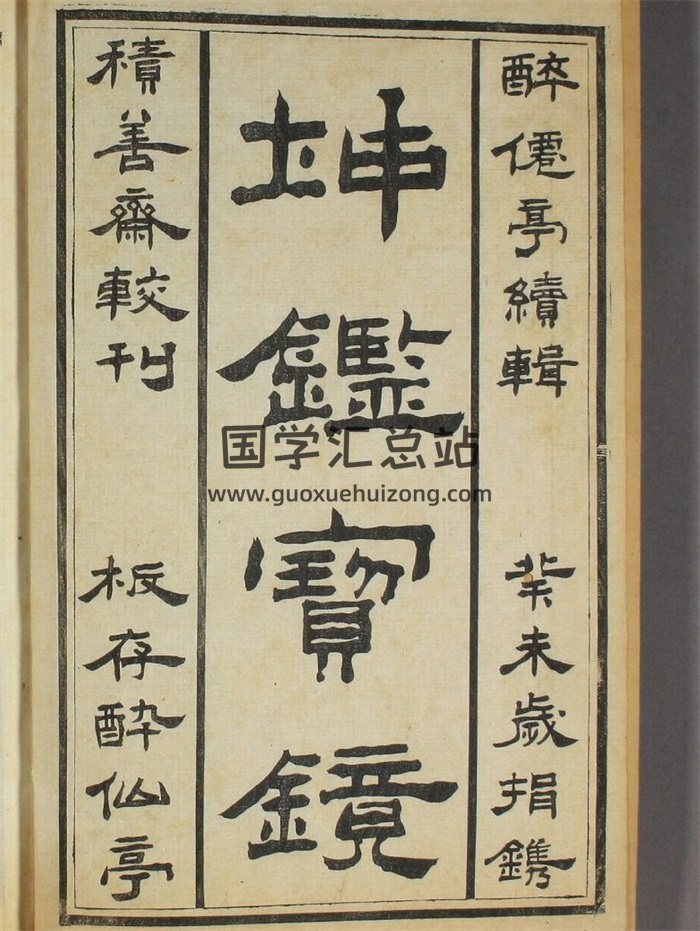 醉僊亭續輯 癸未歲捐鐫
坤鑑寶鏡
積善齋較刊 板存醉仙亭
国学汇总站
www.guoxuehuizong.com